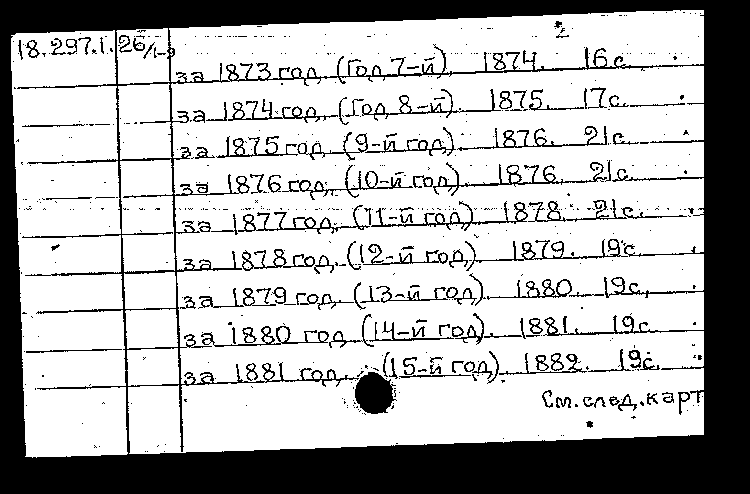 2
18.297.1. 26/1-9
за 1873 год, (Год 7-й), 1874. 16с.
за 1874 год, (Год 8-й). 1875. 17с.
за 1875 год, (9-й год). 1876. 21с.
за 1876 год, (10-й год). 1876. 21с.
за 1877 год, (11-й год). 1878. 21с.
за 1878 год, (12-й год). 1879. 19с.
за 1879 год, (13-й год). 1880. 19с.
за 1880 год, (14-й год). 1881. 19с.
за 1881 год, (15-й год). 1882. 19с.
См. след. карт